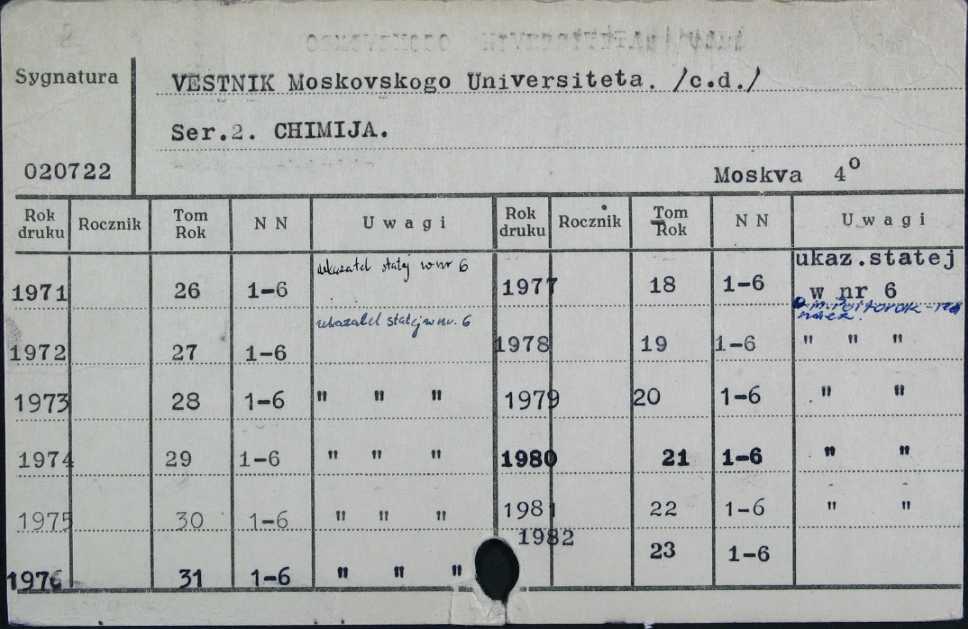 Sygnatura
020722
VESTNIK Moskovskogo Universiteta. /c.d./
Ser.2. CHIMIJA.
Moskva 4°
Rok druku Rocznik Tom Rok N N Uwagi Rok druku Rocznik Tom Rok N N Uwagi
1971 26 1-6 ukazatel statej w nr 6 1977 18 1-6 ukaz.statej w nr 6
1972 27 1-6 ukazatel statej w nr. 6 1978 19 1-6 " " "
1973 28 1-6 " " " 1979 20 1-6 " "
1974 29 1-6 " " " 1980 21 1-6 " "
1975 30 1-6 " " " 1981 22 1-6 " "
1976 31 1-6 " " " 1982 23 1-6